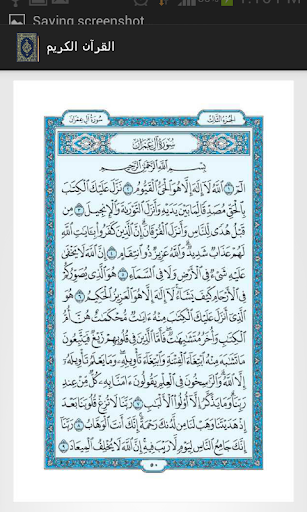 Saving screenshot...
القرآن الكريم
سُورَةُ آلِ عِمْرَان
الجزء الثالث
سُورَةُ آلِ عِمْرَان
بِسْمِ اللَّهِ الرَّحْمَٰنِ الرَّحِيمِ
الٓمٓ ١ اللَّهُ لَا إِلَٰهَ إِلَّا هُوَ الْحَيُّ الْقَيُّومُ ٢ نَزَّلَ عَلَيْكَ الْكِتَٰبَ
بِالْحَقِّ مُصَدِّقًا لِّمَا بَيْنَ يَدَيْهِ وَأَنزَلَ التَّوْرَىٰةَ وَالْإِنجِيلَ ٣ مِن
قَبْلُ هُدًى لِّلنَّاسِ وَأَنزَلَ الْفُرْقَانَ إِنَّ الَّذِينَ كَفَرُوا بِـَٔايَٰتِ اللَّهِ
لَهُمْ عَذَابٌ شَدِيدٌ وَاللَّهُ عَزِيزٌ ذُو انتِقَامٍ ٤ إِنَّ اللَّهَ لَا يَخْفَىٰ
عَلَيْهِ شَيْءٌ فِي الْأَرْضِ وَلَا فِي السَّمَاءِ ٥ هُوَ الَّذِي يُصَوِّرُكُمْ
فِي الْأَرْحَامِ كَيْفَ يَشَاءُ لَا إِلَٰهَ إِلَّا هُوَ الْعَزِيزُ الْحَكِيمُ ٦ هُوَ
الَّذِي أَنزَلَ عَلَيْكَ الْكِتَٰبَ مِنْهُ ءَايَٰتٌ مُّحْكَمَٰتٌ هُنَّ أُمُّ
الْكِتَٰبِ وَأُخَرُ مُتَشَٰبِهَٰتٌ فَأَمَّا الَّذِينَ فِي قُلُوبِهِمْ زَيْغٌ فَيَتَّبِعُونَ
مَا تَشَٰبَهَ مِنْهُ ابْتِغَاءَ الْفِتْنَةِ وَابْتِغَاءَ تَأْوِيلِهِ وَمَا يَعْلَمُ تَأْوِيلَهُ
إِلَّا اللَّهُ وَالرَّٰسِخُونَ فِي الْعِلْمِ يَقُولُونَ ءَامَنَّا بِهِ كُلٌّ مِّنْ عِندِ
رَبِّنَا وَمَا يَذَّكَّرُ إِلَّا أُولُوا الْأَلْبَٰبِ ٧ رَبَّنَا لَا تُزِغْ قُلُوبَنَا بَعْدَ
إِذْ هَدَيْتَنَا وَهَبْ لَنَا مِن لَّدُنكَ رَحْمَةً إِنَّكَ أَنتَ الْوَهَّابُ ٨ رَبَّنَا
إِنَّكَ جَامِعُ النَّاسِ لِيَوْمٍ لَّا رَيْبَ فِيهِ إِنَّ اللَّهَ لَا يُخْلِفُ الْمِيعَادَ ٩
٥٠